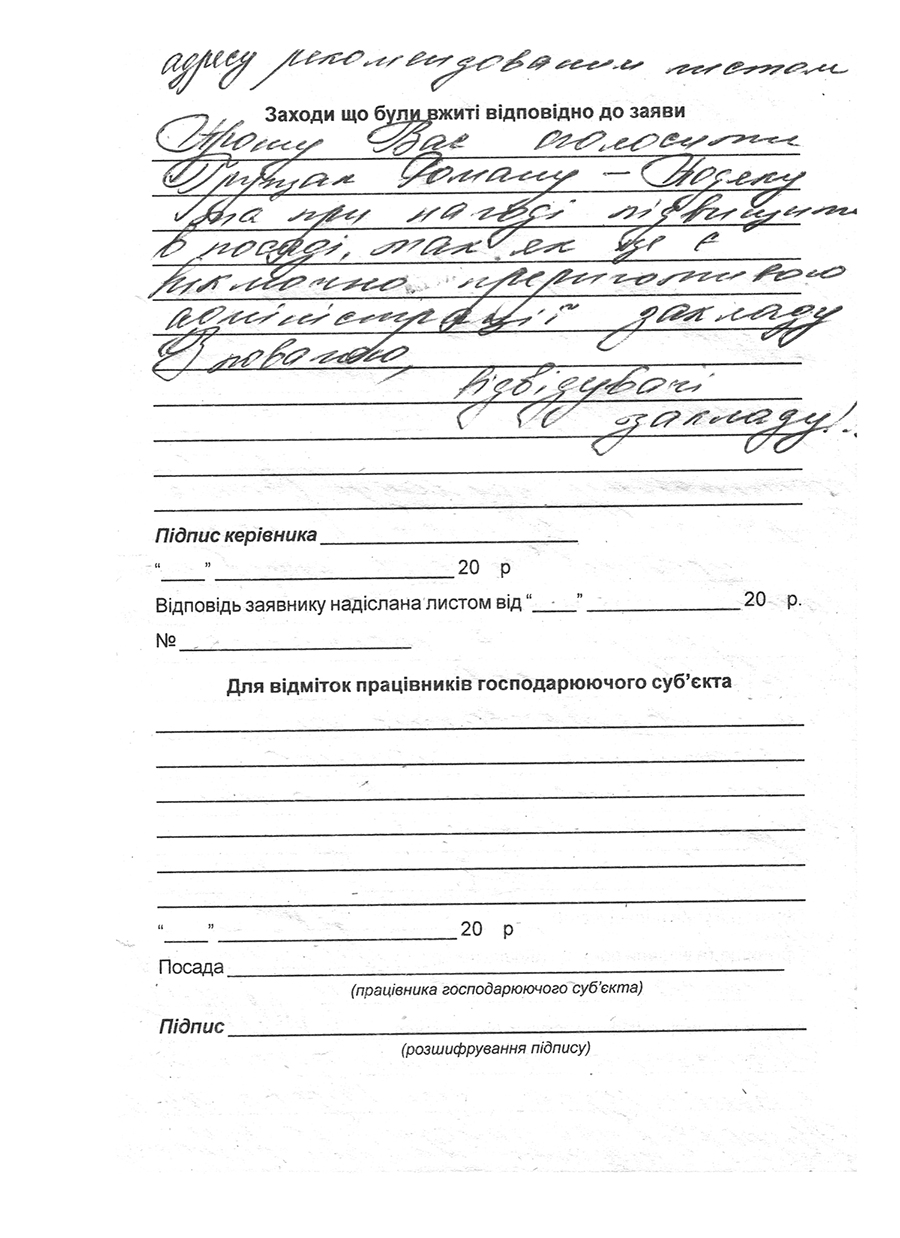 адресу рекомендованим листом
Заходи що були вжиті відповідно до заяви
Прошу Вас оголосити
Грущак Роману – Подяку
та при нагоді підвищити
в посаді, так як це є
виключно прерогативою
адміністрації закладу
З повагою,
відвідувачі
закладу!..
Підпис керівника
“____” ____ 20 р
Відповідь заявнику надіслана листом від “____” ____ 20 р.
№ ____
Для відміток працівників господарюючого суб’єкта
“____” ____ 20 р
Посада
(працівника господарюючого суб’єкта)
Підпис
(розшифрування підпису)